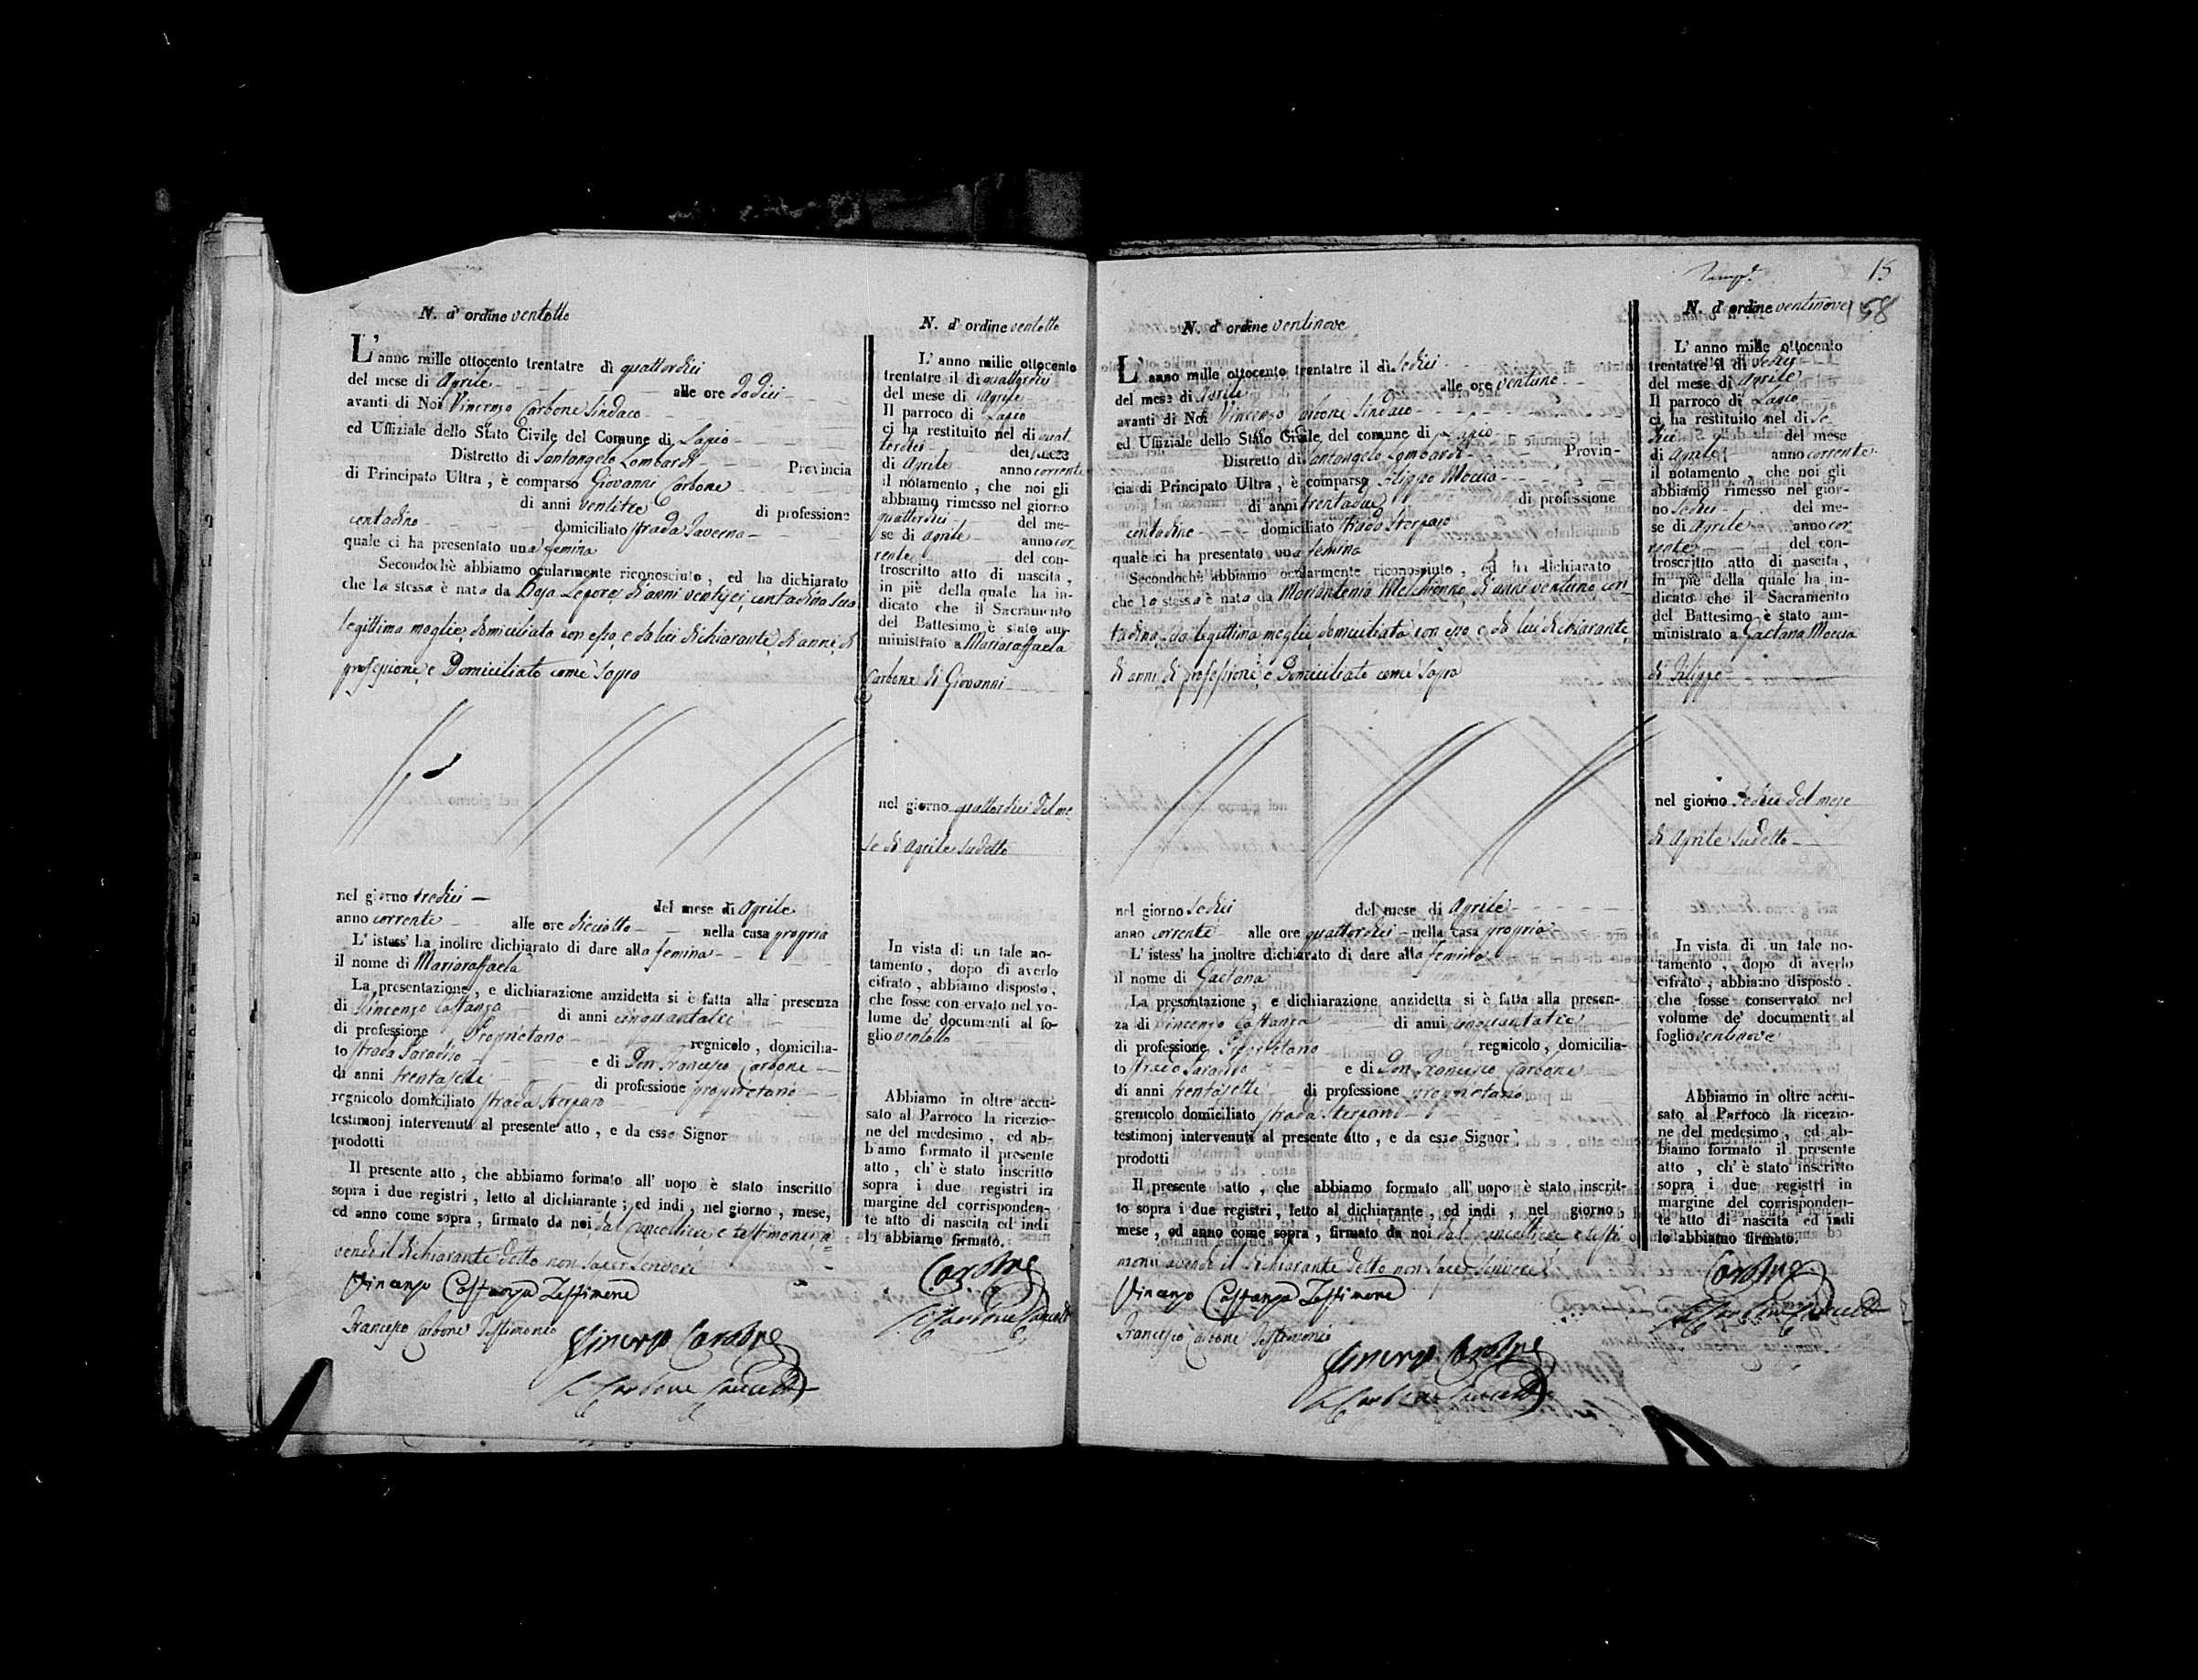 N. d' ordine ventotto
L' anno mille ottocento trentatre dì quattordici
del mese di Aprile alle ore dodici
avanti di Noi Vincenzo Carbone Sindaco
ed Uffiziale dello Stato Civile del Comune di Lapio
Distretto di Santangelo Lombardi Provincia
di Principato Ultra, è comparso Giovanni Carbone
di anni ventitre di professione
contadino domiciliato strada Taverna
quale ci ha presentato una femina
Secondochè abbiamo ocularmente riconosciuto, ed ha dichiarato
che la stessa è nata da Rosa Lepore, di anni ventisei contadina sua
legittima moglie domiciliata con esso, e da lui dichiarante, di anni, di
professione, e Domiciliato come sopra
nel giorno tredici
del mese di Aprile
anno corrente alle ore diciotto nella casa propria
L' istess' ha inoltre dichiarato di dare alla femina
il nome di Mariaraffaela
La presentazione, e dichiarazione anzidetta si è fatta alla presenza
di Vincenzo Costanza di anni cinquantatre
di professione Proprietario regnicolo, domicilia-
to strada Paradiso e di Don Francesco Carbone
di anni trentasette di professione proprietario
regnicolo domiciliato strada Sterparo
testimonj intervenuti al presente atto, e da esso Signor
prodotti
Il presente atto, che abbiamo formato all' uopo è stato inscritto
sopra i due registri, letto al dichiarante; ed indi, nel giorno, mese,
ed anno come sopra, firmato da noi dal Cancelliere e testimonii a-
vendo il dichiarante detto non saper scrivere
Vincenzo Costanza Testimone
Francesco Carbone Testimonio
Vincenzo Carbone
Carbone
N. d' ordine ventotto
L' anno mille ottocento
trentatre il dì quattordici
del mese di Aprile
Il parroco di Lapio
ci ha restituito nel dì quat
tordici del mese
di Aprile anno corrente
il notamento, che noi gli
abbiamo rimesso nel giorno
quattordici del me-
se di Aprile anno cor
rente del con-
troscritto atto di nascita,
in piè della quale ha in-
dicato che il Sacramento
del Battesimo è stato am-
ministrato a Mariaraffaela
Carbone di Giovanni
nel giorno quattordici del me
se di Aprile sudetto
In vista di un tale no-
tamento, dopo di averlo
cifrato, abbiamo disposto,
che fosse conservato nel vo-
lume de' documenti al fo-
glio ventotto
Abbiamo in oltre accu-
sato al Parroco la ricezio-
ne del medesimo, ed ab-
biamo formato il presente
atto, ch' è stato inscritto
sopra i due registri in
margine del corrisponden-
te atto di nascita ed indi
lo abbiamo firmato.
Carbone
15
158
N. d' ordine ventinove
L' anno mille ottocento trentatre il dì sedici
del mese di Aprile alle ore ventuno
avanti di Noi Vincenzo Carbone Sindaco
ed Uffiziale dello Stato Civile del comune di Lapio
Distretto di Santangelo Lombardi Provin-
cia di Principato Ultra, è comparso Filippo Moccia
di anni trentadue di professione
contadino domiciliato strada Sterparo
quale ci ha presentato una femina
Secondochè abbiamo ocularmente riconosciuto, ed ha dichiarato
che la stessa è nata da Mariantonia Melchionno, di anni ventuno con
tadina sua legittima moglie domiciliata con esso, e da lui dichiarante,
di anni, di professione, e Domiciliato come sopra
nel giorno sedici del mese di Aprile
anno corrente alle ore quattordici nella casa propria
L' istess' ha inoltre dichiarato di dare alla femina
il nome di Gaetana
La presentazione, e dichiarazione anzidetta si è fatta alla presen-
za di Vincenzo Costanza di anni cinquantatre
di professione Proprietario regnicolo, domicilia-
to strada Paradiso e di Don Francesco Carbone
di anni trentasette di professione proprietario
grenicolo domiciliato strada Sterparo
testimonj intervenuti al presente atto, e da esso Signor
prodotti
Il presente atto, che abbiamo formato all' uopo è stato inscrit-
to sopra i due registri, letto al dichiarante, ed indi, nel giorno,
mese, ed anno come sopra, firmato da noi dal Cancelliere e testi
monii avendo il dichiarante detto non saper scrivere
Vincenzo Costanza Testimone
Francesco Carbone Testimonio
Vincenzo Carbone
Carbone
N. d' ordine ventinove
L' anno mille ottocento
trentatre il dì sedici
del mese di Aprile
Il parroco di Lapio
ci ha restituito nel dì se
dici del mese
di Aprile anno corrente
il notamento, che noi gli
abbiamo rimesso nel gior-
no sedici del me-
se di Aprile anno cor
rente del con-
troscritto atto di nascita,
in piè della quale ha in-
dicato che il Sacramento
del Battesimo è stato am-
ministrato a Gaetana Moccia
di Filippo
nel giorno sedici del mese
di Aprile sudetto
In vista di un tale no-
tamento, dopo di averlo
cifrato, abbiamo disposto.
che fosse conservato nel
volume de' documenti al
foglio ventinove
Abbiamo in oltre accu-
sato al Parroco la ricezio-
ne del medesimo, ed ab-
biamo formato il presente
atto, ch' è stato inscritto
sopra i due registri in
margine del corrisponden-
te atto di nascita ed indi
lo abbiamo firmato.
Carbone